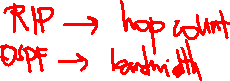 RIP → hop count
OSPF → bandwidth